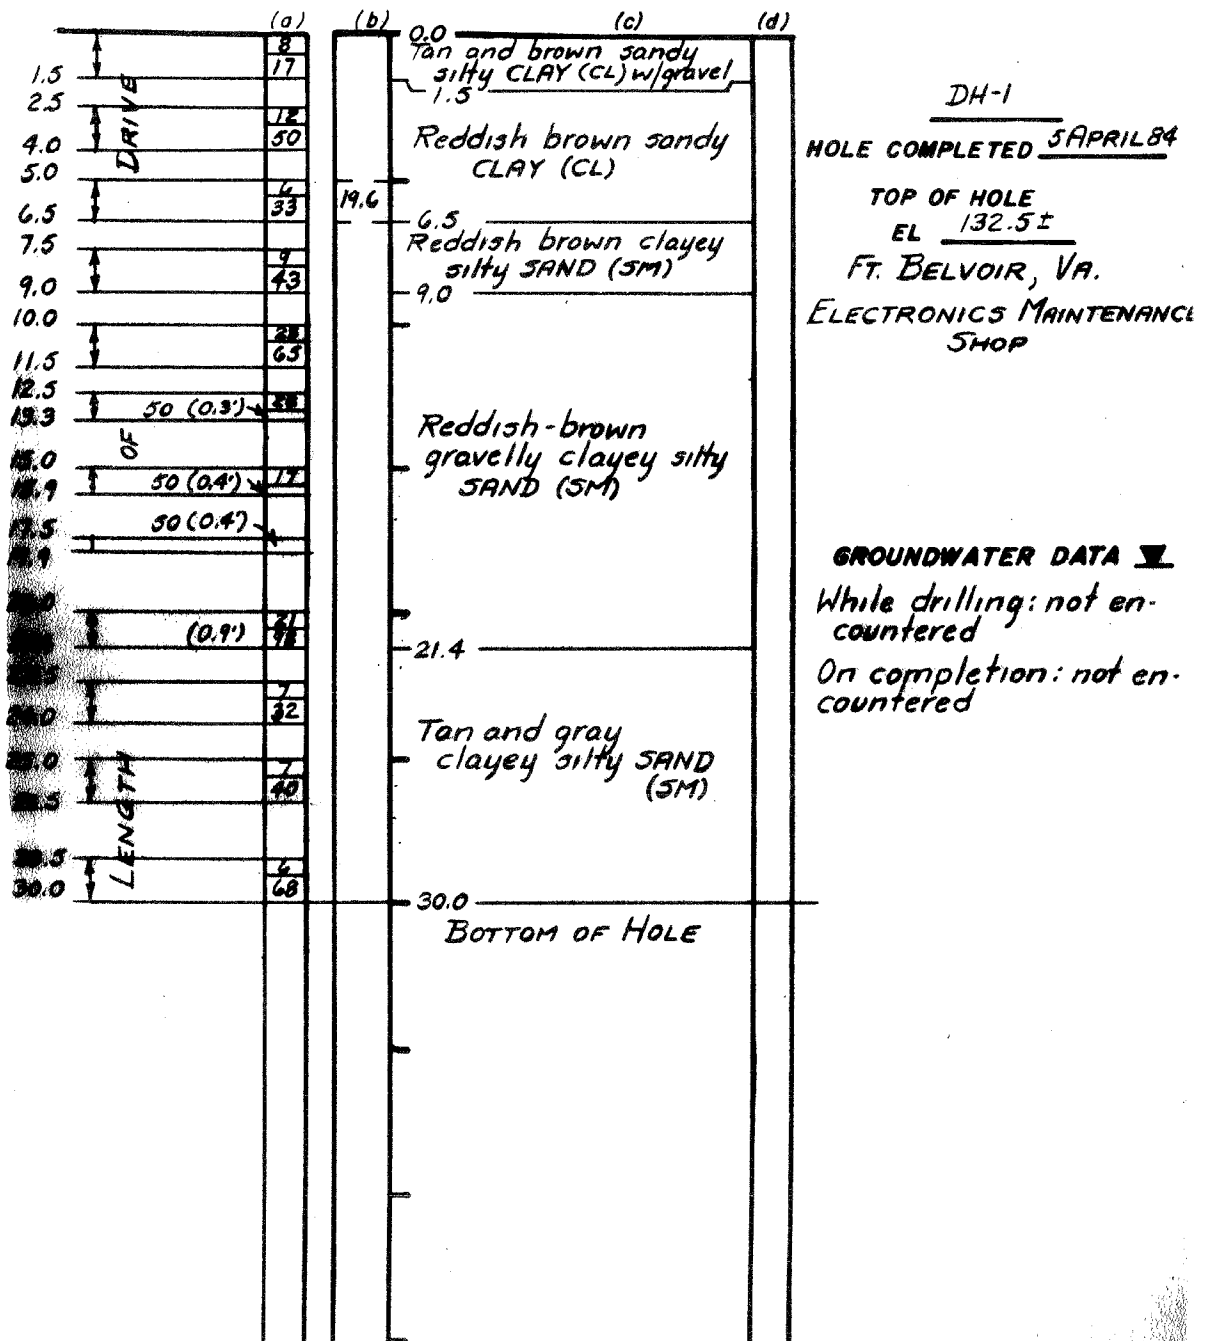 (a) (b) (c) (d)
0.0
8
17
1.5
2.5
12
50
4.0
5.0
6
33
6.5
7.5
9
43
9.0
10.0
28
65
11.5
12.5
28
50 (0.3')
13.3
15.0
17
50 (0.4')
15.9
17.5
50 (0.4')
21
(0.9')
7
32
24.0
7
40
6
30.0
68
LENGTH OF DRIVE
19.6
Tan and brown sandy
silty CLAY (CL) w/gravel
1.5
Reddish brown sandy
CLAY (CL)
6.5
Reddish brown clayey
silty SAND (SM)
9.0
Reddish-brown
gravelly clayey silty
SAND (SM)
21.4
Tan and gray
clayey silty SAND
(SM)
30.0
BOTTOM OF HOLE
DH-1
HOLE COMPLETED 5 APRIL 84
TOP OF HOLE
EL 132.5±
FT. BELVOIR, VA.
ELECTRONICS MAINTENANCE
SHOP
GROUNDWATER DATA
While drilling: not en-
countered
On completion: not en-
countered